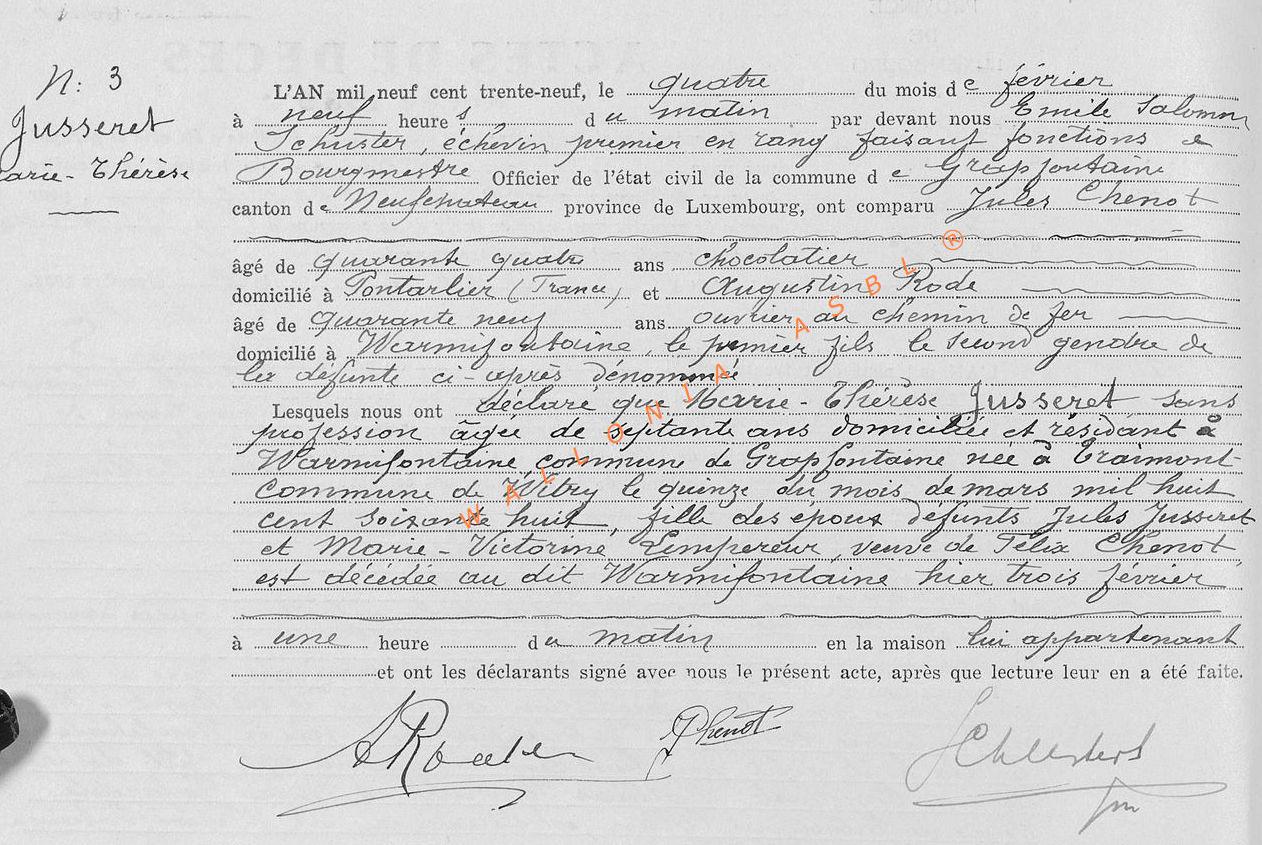 N: 3
Jusseret
arie-Thérèse
L'AN mil neuf cent trente-neuf, le quatre du mois de février
à neuf heures du matin par devant nous Emile Salomon
Schuster, échevin premier en rang faisant fonctions de
Bourgmestre Officier de l'état civil de la commune de Grapfontaine
canton de Neufchateau province de Luxembourg, ont comparu Jules Chenot
âgé de quarante quatre ans chocolatier
domicilié à Pontarlier (France) et Augustin Rode
âgé de quarante neuf ans ouvrier au chemin de fer
domicilié à Warmifontaine, le premier fils le second gendre de
la défunte ci-après dénommé
Lesquels nous ont déclaré que Marie-Thérèse Jusseret sans
profession âgée de septante ans domiciliée et résidant à
Warmifontaine commune de Grapfontaine née à Traimont
commune de Witry le quinze du mois de mars mil huit
cent soixante huit, fille des epoux défunts Jules Jusseret
et Marie-Victorine Lempereur, veuve de Félix Chenot
est décédée au dit Warmifontaine hier trois février
à une heure du matin en la maison lui appartenant
et ont les déclarants signé avec nous le présent acte, après que lecture leur en a été faite.
JChenot
WALLONIA ASBL ®